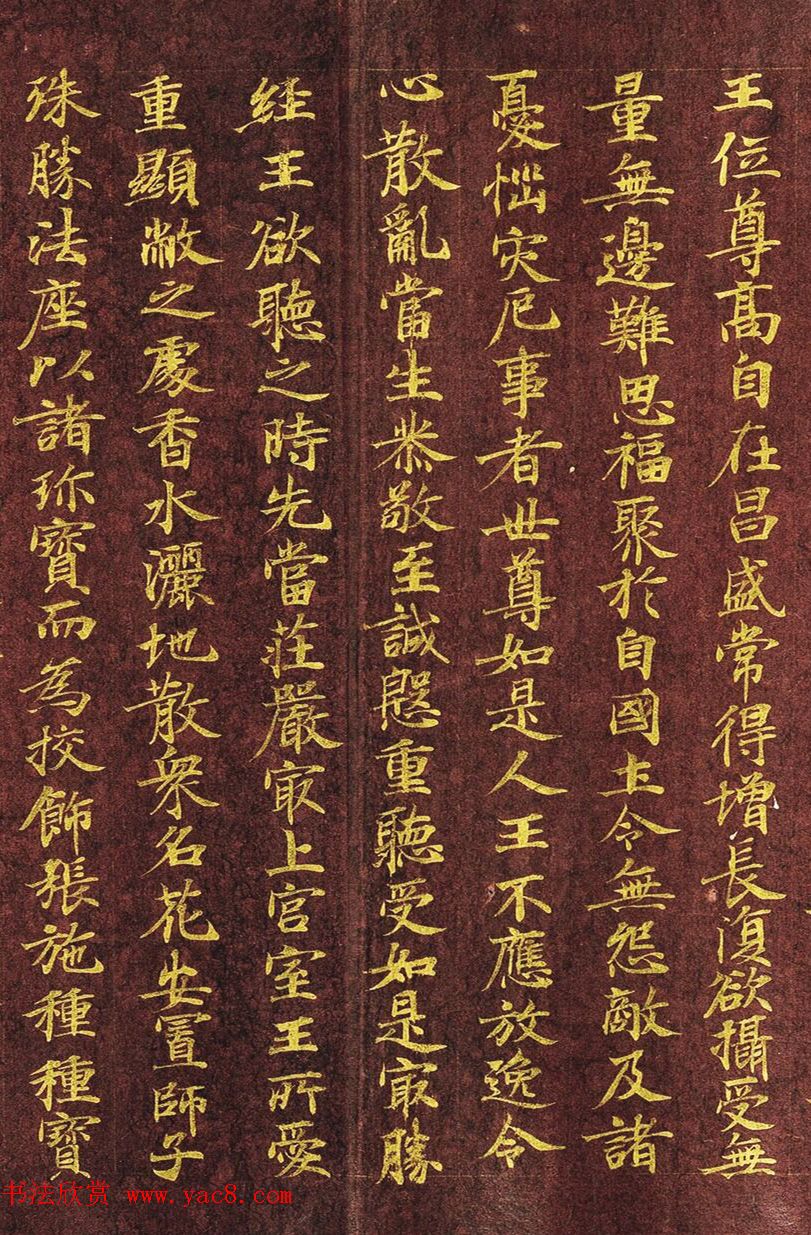 王位尊高自在昌盛常得增長復欲攝受無
量無邊難思福聚於自國土令無怨敵及諸
憂惱灾厄事者世尊如是人王不應放逸令
心散亂當生恭敬至誠慇重聽受如是冣勝
經王欲聽之時先當莊嚴冣上宮室王所愛
重顯敞之處香水灑地散衆名花安置師子
殊勝法座以諸珎寶而為挍飾張施種種寶
书法欣赏 www.yac8.com